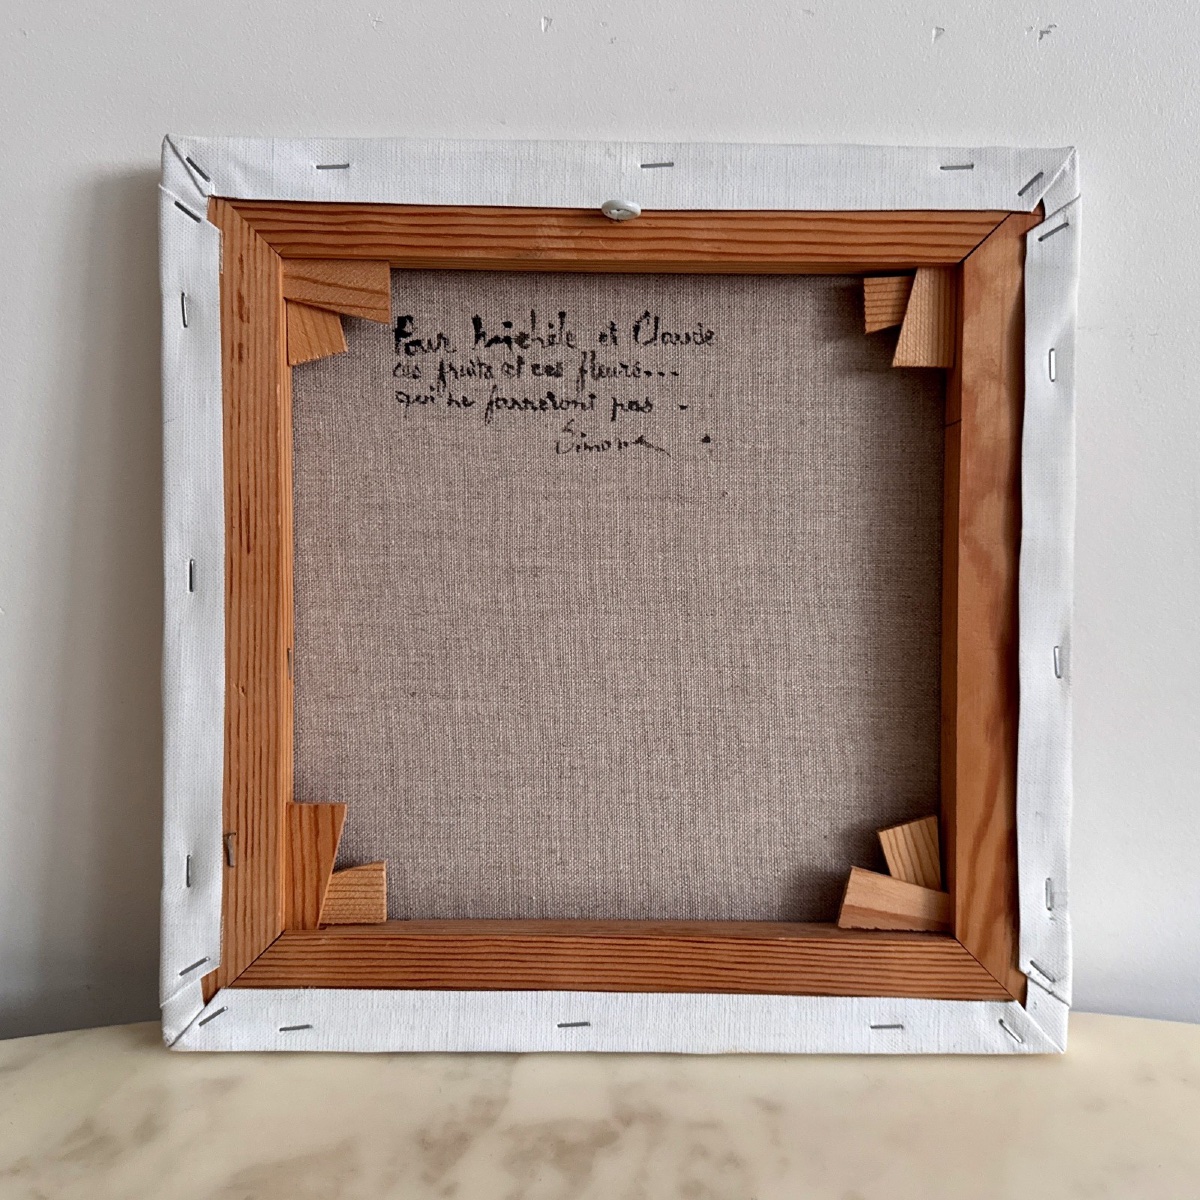 Pour Michèle et Claude
ces fruits et ces fleurs...
qui ne faneront pas -
Simone